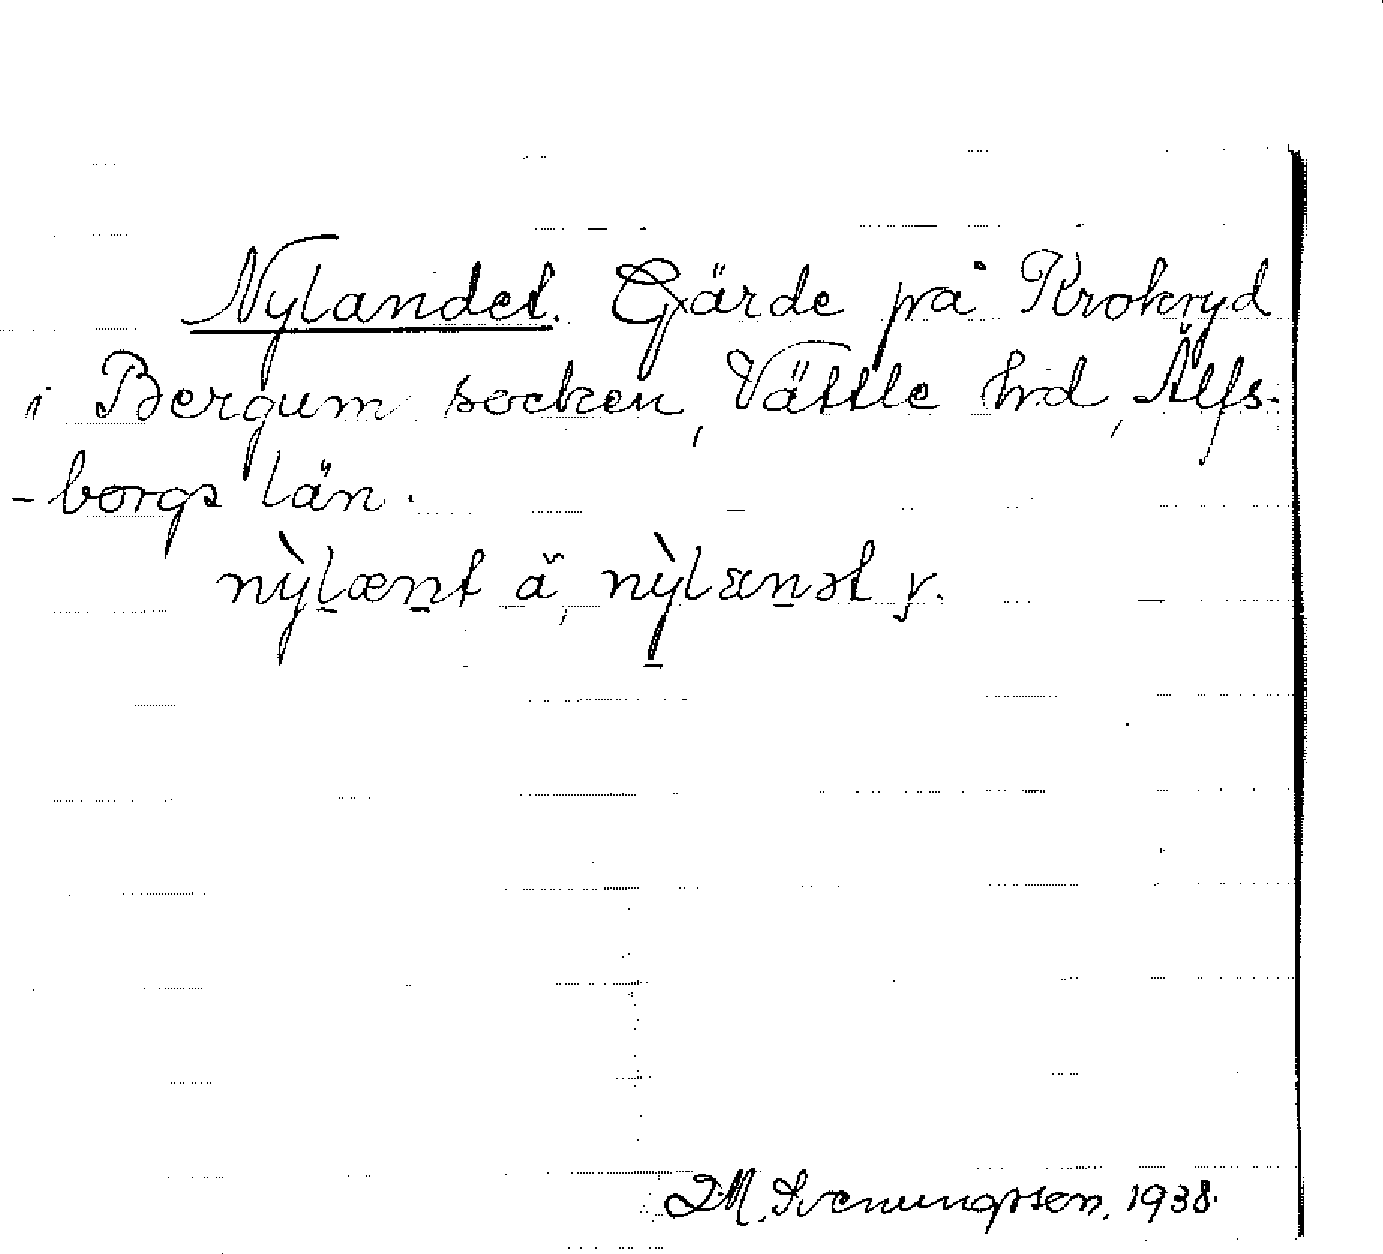 Nylandet. Gärde på Krokryd
i Bergum socken, Vättle hrd, Älfs-
-borgs län.
nỳlænt ä, nỳlænət y.
I.M. Svenungsson, 1938.